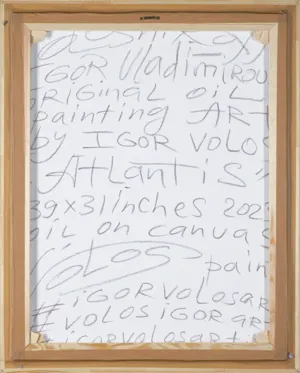 IGOR Vladimirov
ORIGINAL OIL
painting ART
by IGOR VOLOS
"Atlantis"
39x31inches 202
oil on canvas
VOLOS pain
#igorvolosar
#volosigorar
#igorvolosarti